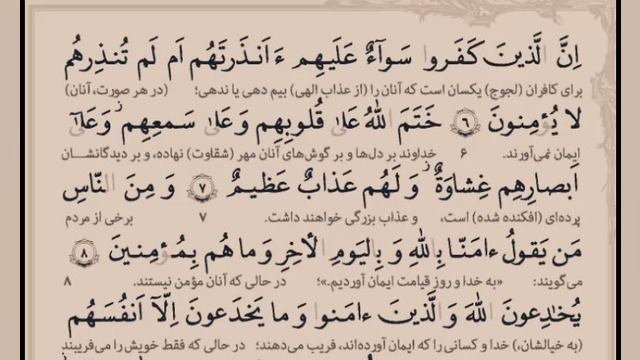 اِنَّ الَّذينَ كَفَروا سَوآءٌ عَلَيهِم ءَاَنذَرتَهُم اَم لَم تُنذِرهُم
برای کافران (لجوج) یکسان است که آنان را (از عذاب الهی) بیم دهی یا ندهی؛ (در هر صورت، آنان)
لا يُؤمِنونَ ﴿٦﴾ خَتَمَ اللّٰهُ عَلىٰ قُلوبِهِم وَ عَلىٰ سَمعِهِم ز وَ عَلىٰٓ
ایمان نمی‌آورند. ۶ خداوند بر دل‌ها و بر گوش‌های آنان مهر (شقاوت) نهاده، و بر دیدگانشان
اَبصارِهِم غِشاوَةٌ ز وَ لَهُم عَذابٌ عَظيمٌ ﴿٧﴾ وَ مِنَ النّاسِ
پرده‌ای (افکنده شده) است، و عذاب بزرگی خواهند داشت. ۷ برخی از مردم
مَن يَقولُ ءامَنّا بِاللّٰهِ وَ بِاليَومِ الأخِرِ وَ ما هُم بِمُؤمِنينَ ﴿٨﴾
می‌گویند: «به خدا و روز قیامت ایمان آوردیم.»؛ در حالی که آنان مؤمن نیستند. ۸
يُخادِعونَ اللّٰهَ وَ الَّذينَ ءامَنوا وَ ما يَخدَعونَ اِلّآ اَنفُسَهُم
(به خیالشان،) خدا و کسانی را که ایمان آورده‌اند، فریب می‌دهند؛ در حالی که فقط خویش را می‌فریبند